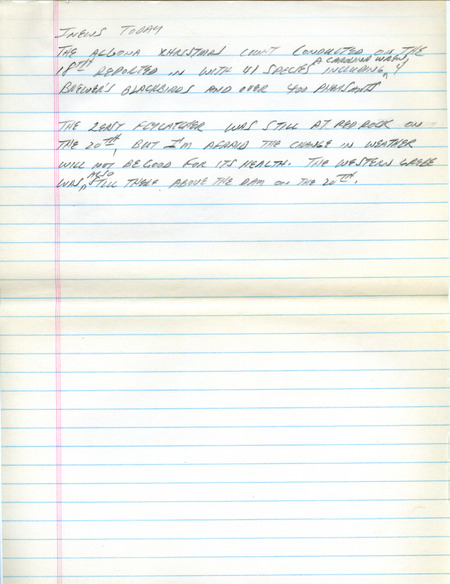 News Today
The Algona Xhristmas Count conducted on the
18th reported in with 41 species including, a Carolina Wren, 4
Brewer's Blackbirds and over 400 Pheasants
The flycatcher was still at Red Rock on
the 20th, but I'm afraid the change in weather
will not be good for its health. The Western Grebe
was also still there above the dam on the 20th.